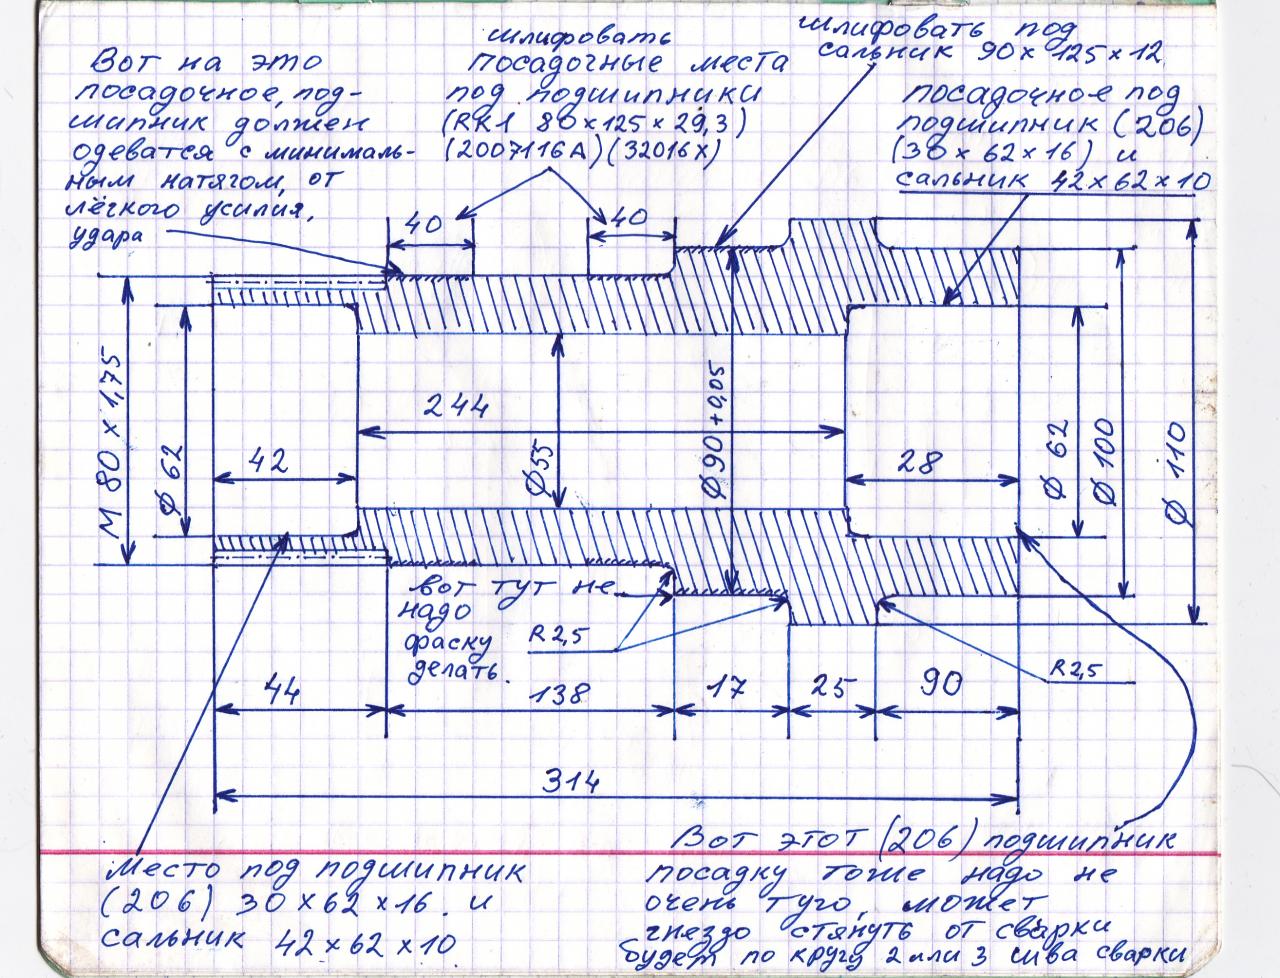 Вот на это
посадочное, под-
шипник должен
одеватся с минималь-
ным натягом, от
лёгкого усилия,
удара
шлифовать
посадочные места
под подшипники
(RK1 80 х 125 х 29,3)
(2007116А) (32016Х)
шлифовать под
сальник 90 х 125 х 12
посадочное под
подшипник (206)
(30 х 62 х 16) и
сальник 42 х 62 х 10
40
40
M 80 х 1,75
Ø 62
42
244
Ø55
Ø90 +0,05
28
Ø 62
Ø 100
Ø 110
вот тут не
надо
фаску
делать.
R 2,5
R 2,5
44
138
17
25
90
314
Место под подшипник
(206) 30 х 62 х 16. и
сальник 42 х 62 х 10
Вот этот (206) подшипник
посадку тоже надо не
очень туго, может
гнездо стянуть от сварки
будет по кругу 2 или 3 шва сварки